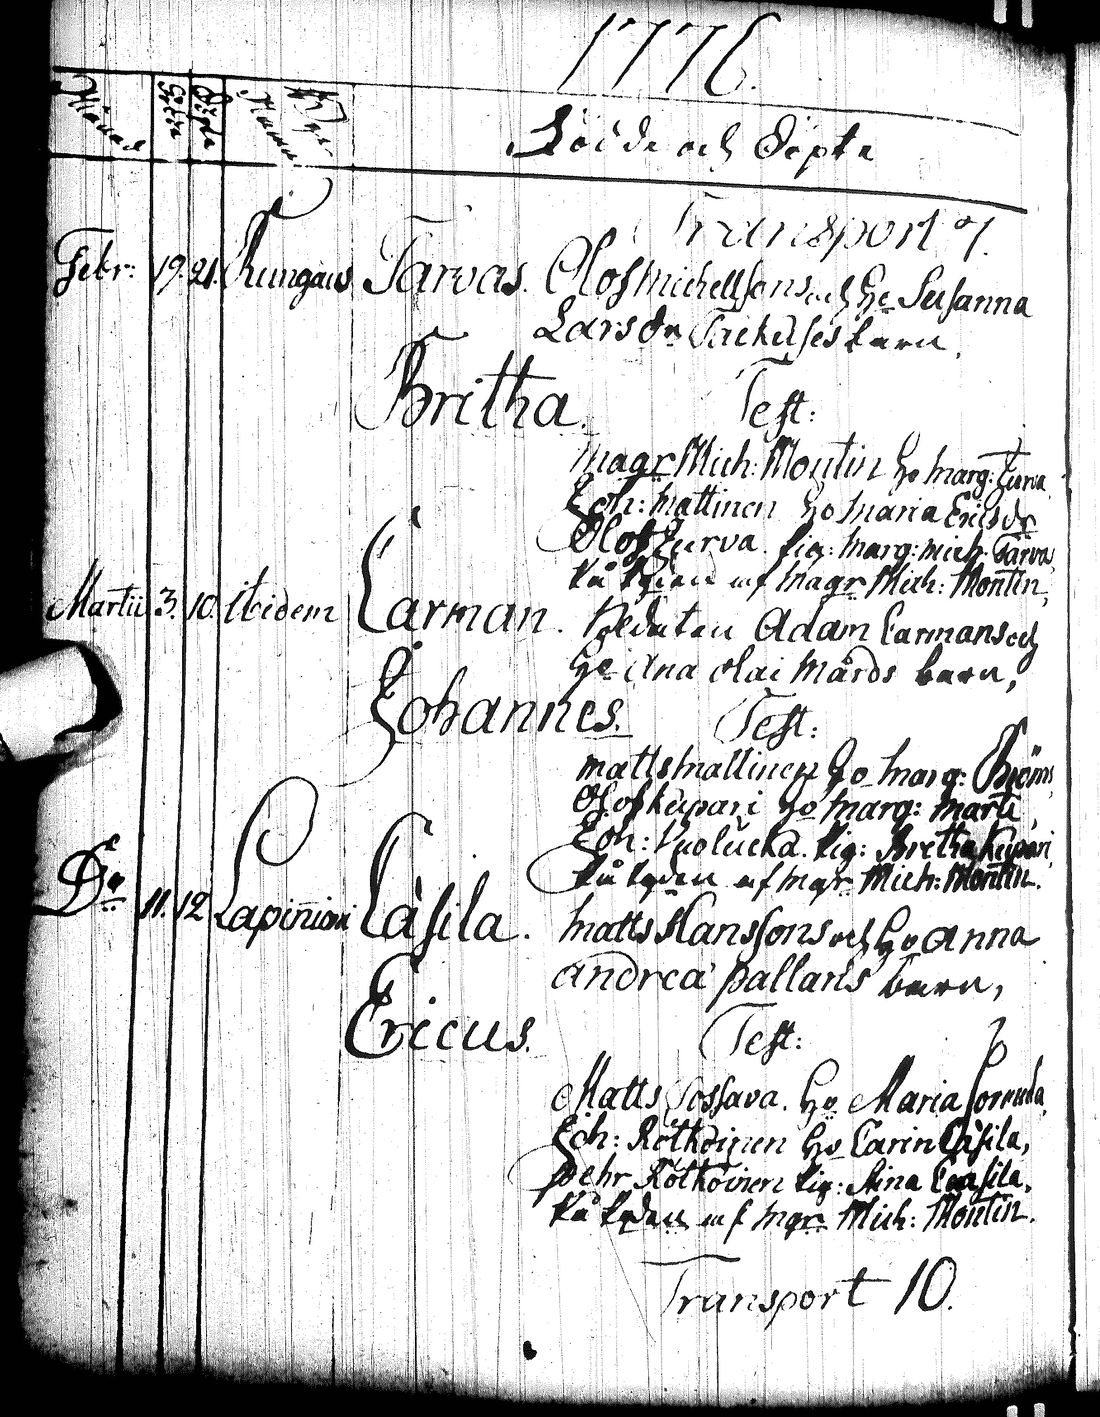 1776.
Månad
Födde
Döpte
Byar Namn
Födde och Döpte
Transport 7.
Febr: 19. 21. Kungäus Tarvas. Olof Michellsons och Ho Susanna
Lars dr barn.
Britha. Test:
Magr Mich: Montin Ho Marg:
Joh: Mattinen Ho Maria Ericsdr
Olof Pig: Marg: Mich: Tarva,
På Kyrkan af Magr Mich: Montin,
Martii 3. 10. Ibidem Carman. Soldaten Adam Carmans och
Ho Ana Olai Mårds barn,
Johannes. Test:
Matts Mattinen Ho Marg:
Olof Kupari Ho Marg: Marti,
Joh: Puolucka. Pig: Bretha Kupari,
På Kyrkan af Mgr Mich: Montin.
Do 11. 12 Lapiniemi Cäsila. Matts Hanssons och Ho Anna
Andreæ Pallaris barn,
Ericus. Test:
Matts Ho Maria
Joh: Rötköinen Ho Carin Cäsila,
Pehr Rötköinen Pig: Stina Caasila,
På Kyrkan af Mgr Mich: Montin.
Transport 10.